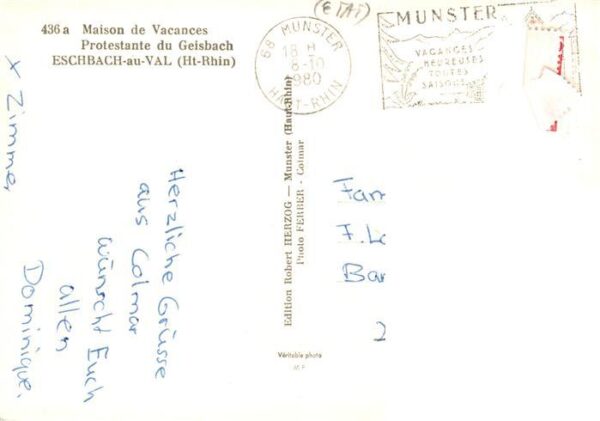 436 a Maison de Vacances
Protestante du Geisbach
ESCHBACH-au-VAL (Ht-Rhin)
x Zimmer
Herzliche Grüsse
aus Colmar
wünscht Euch
allen
Dominique.
Edition Robert HERZOG — Munster (Haut-Rhin)
Photo FERBER - Colmar
Véritable photo
68 MUNSTER
18 H
8-10
1980
HAUT-RHIN
(ETAT)
MUNSTER
VACANCES
HEUREUSES
TOUTES
SAISONS
Fam
F. Le
Bar
2